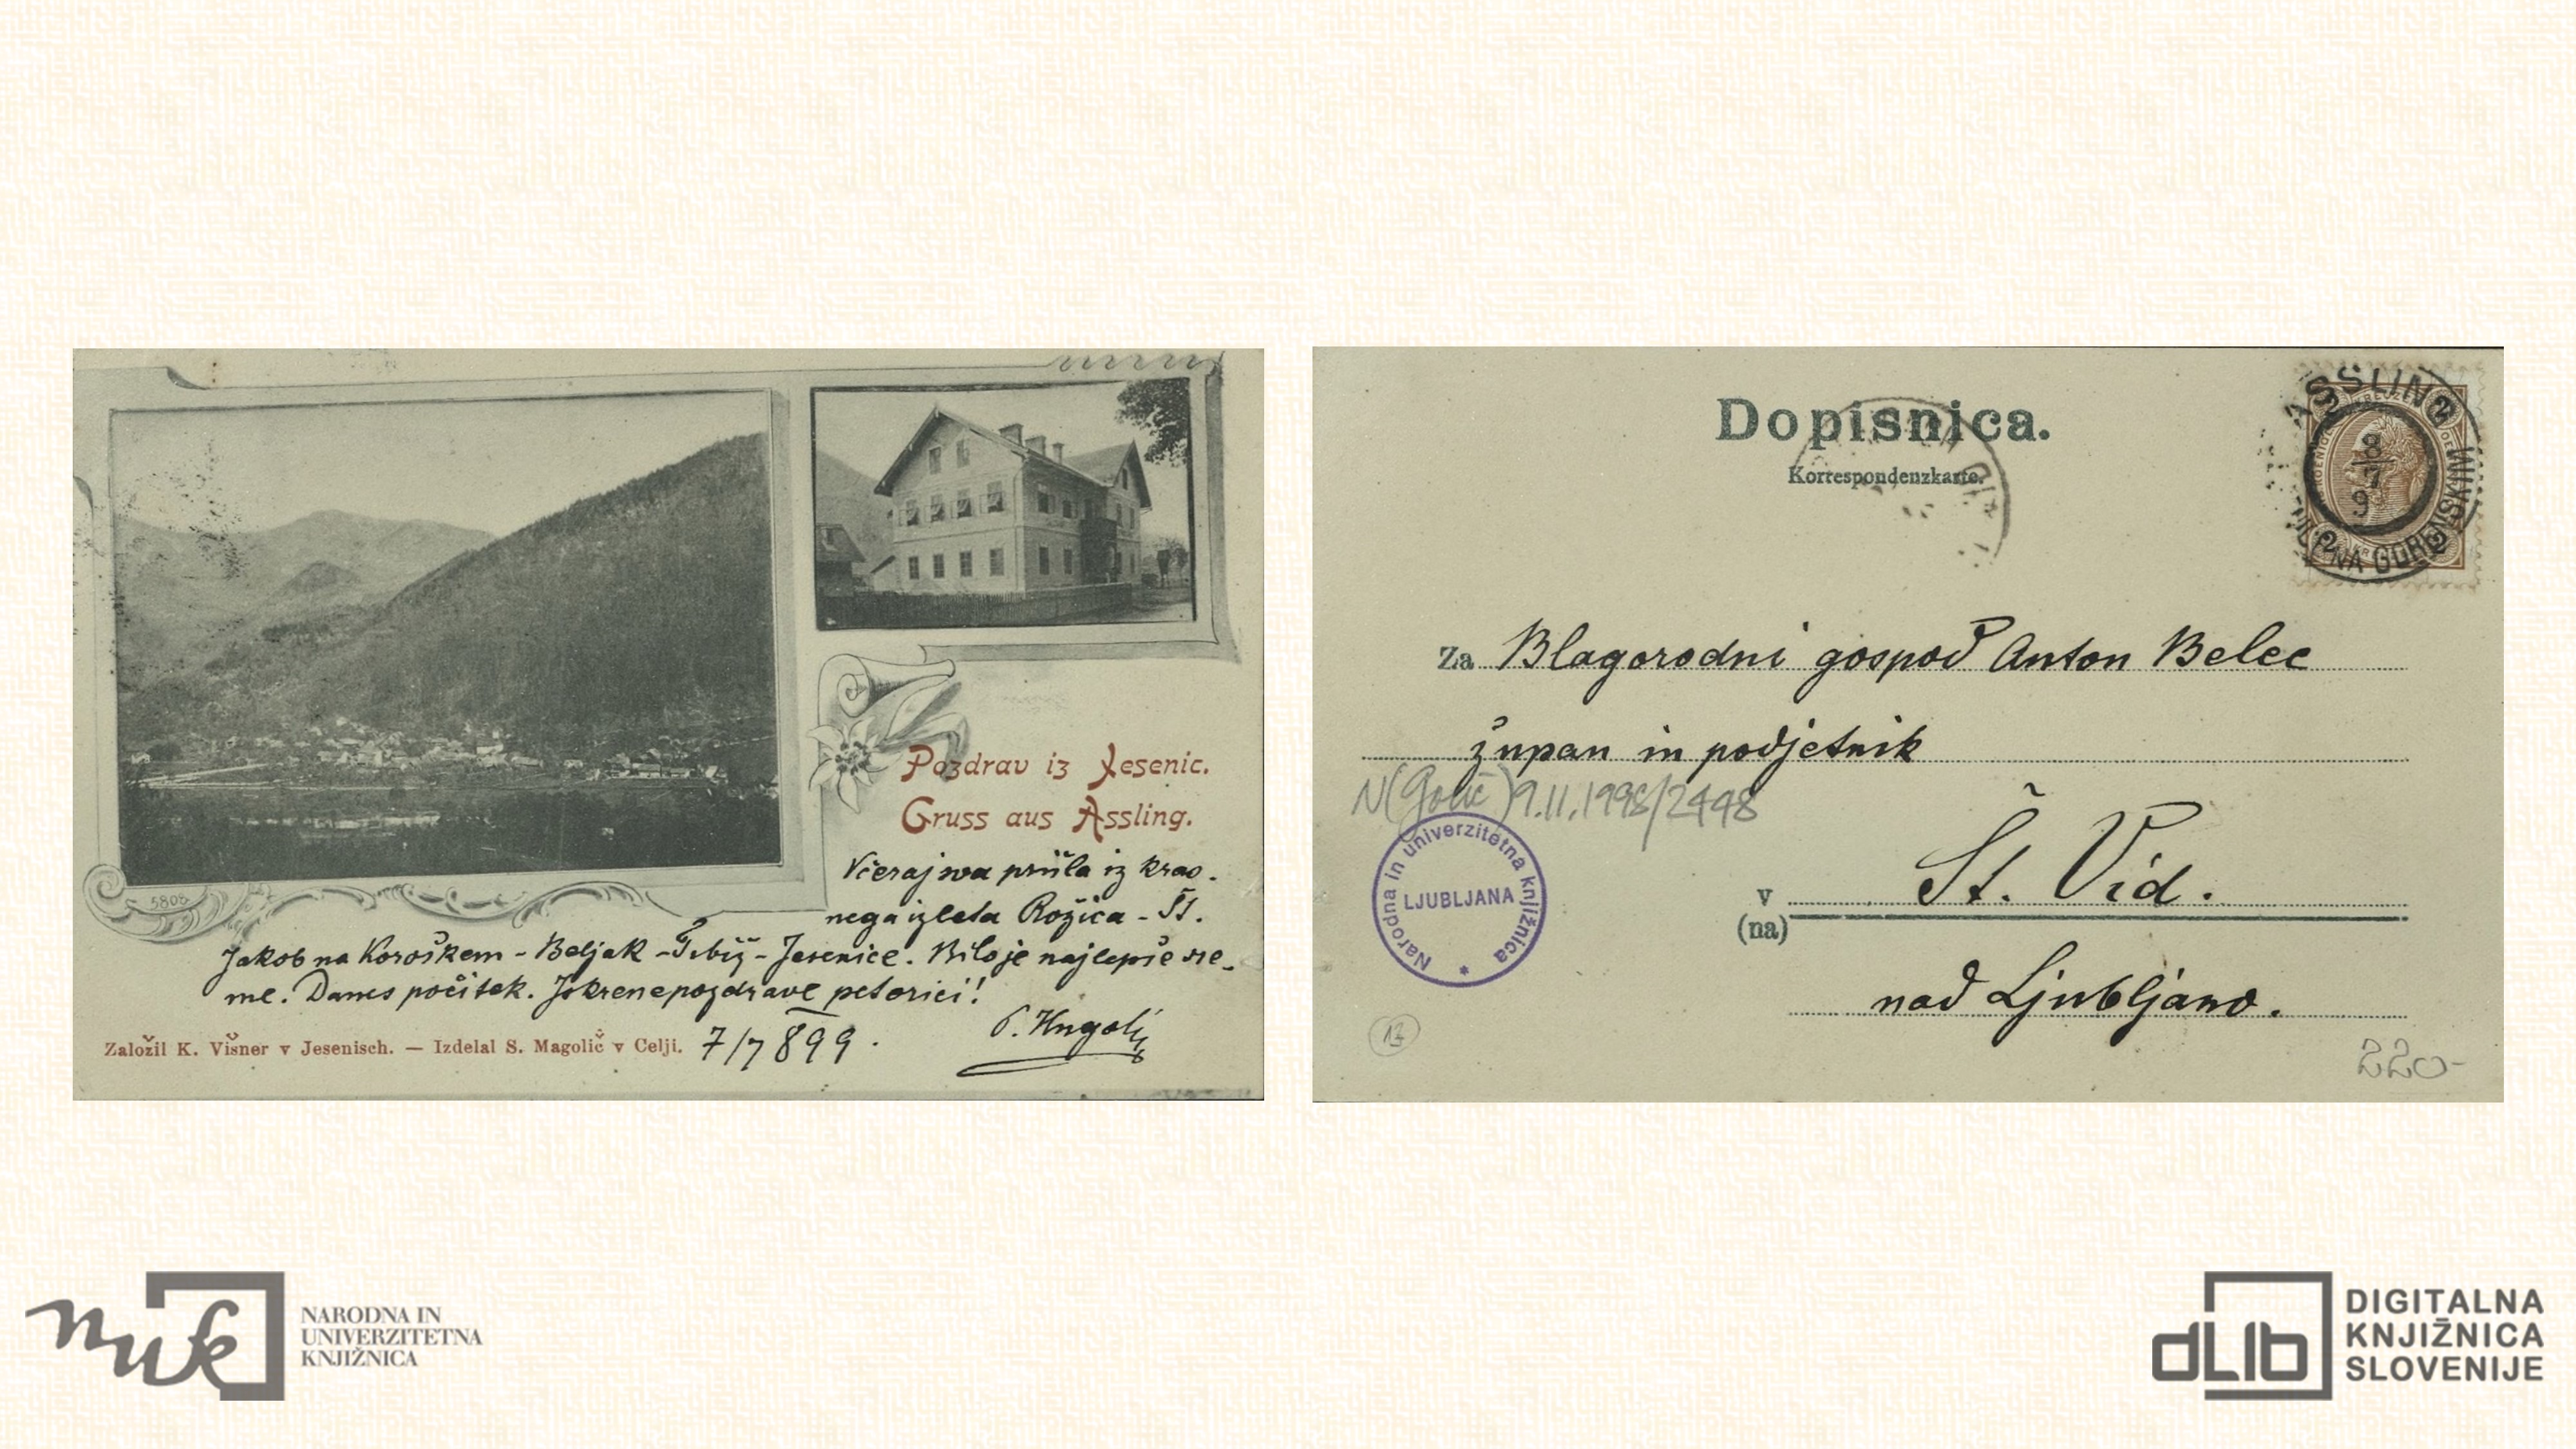 Pozdrav iz Jesenic.
Gruss aus Assling.
Včeraj sva prišla iz kras-
nega izleta Rožica - Št.
Jakob na Koroškem - Beljak - Trbiž - Jesenice. Bilo je najlepše vre-
me. Danes počitek. Iskrene pozdrave petorici!
7/7 899.
Založil K. Višner v Jesenisch. — Izdelal S. Magolič v Celji.
5808
Dopisnica.
Korrespondenzkarte.
ASSLING
8
7
9
NA GORENSKIM
2
2
Za Blagorodni gospod Anton Belec
župan in podjetnik
9.11.1998/2448
Narodna in univerzitetna knjižnica
LJUBLJANA
v Št. Vid.
(na)
nad Ljubljano.
13
220-
nuk
NARODNA IN
UNIVERZITETNA
KNJIŽNICA
dLib
DIGITALNA
KNJIŽNICA
SLOVENIJE